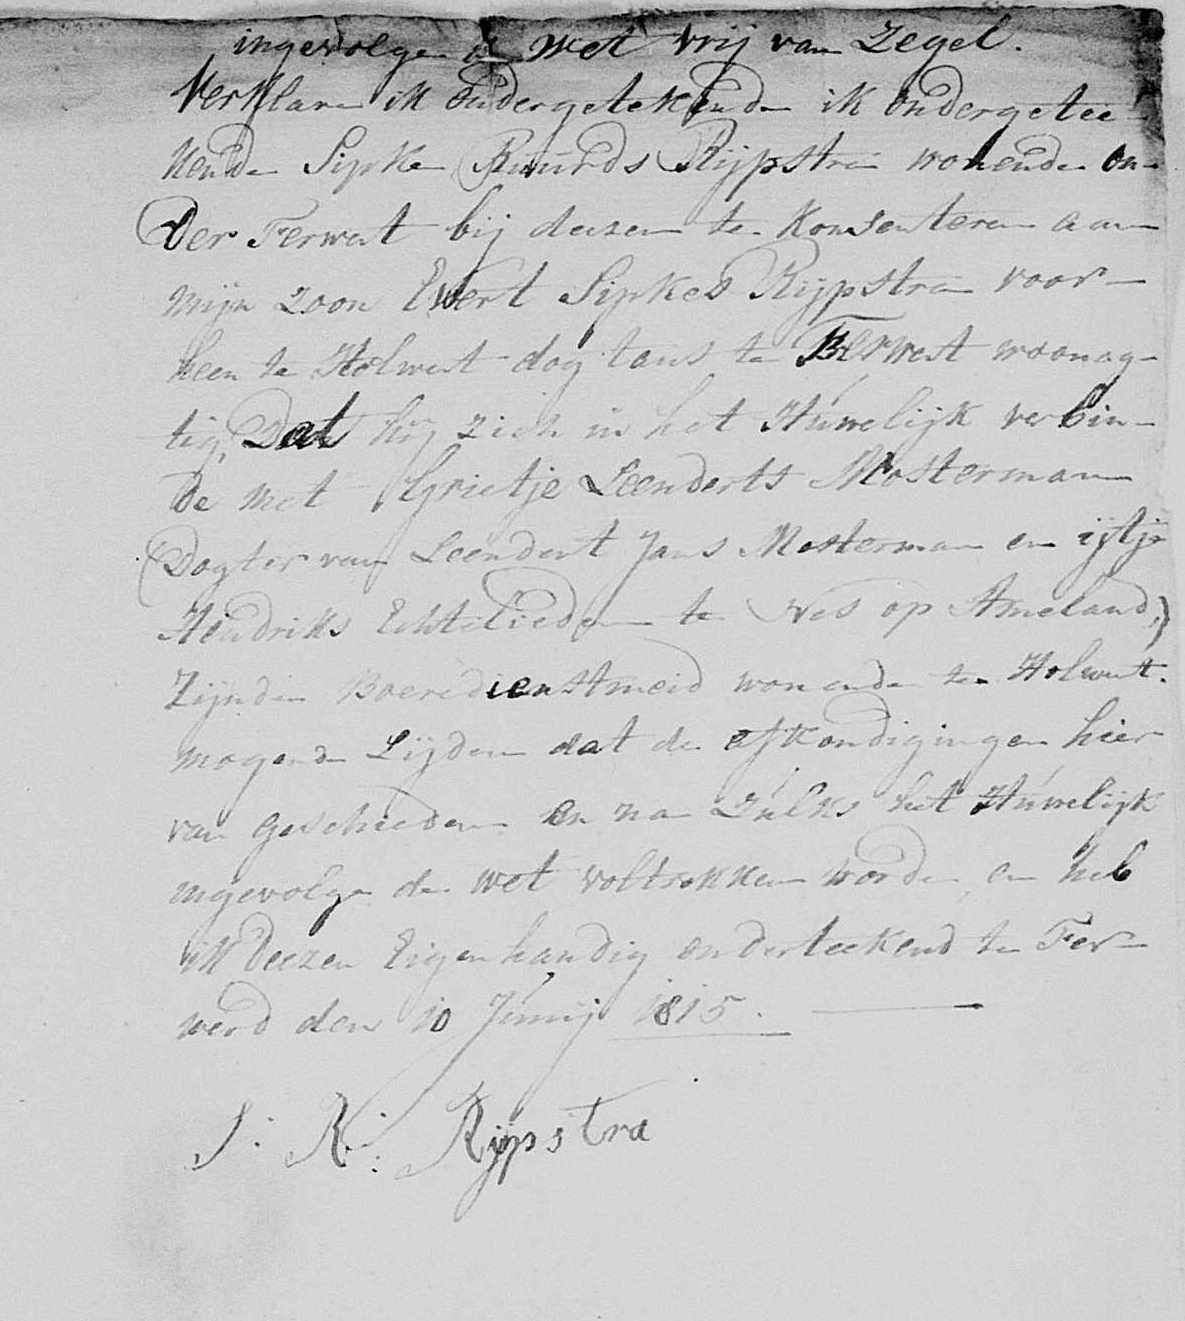 ingevolge de wet vrij van Zegel.
Verklare ik ondergetekende ik ondergetee-
kende Sipke Ruurds Rijpstra wonende on-
der Ferwert bij deezen te konsenteren aan
mijn zoon Ewert Sipkes Rijpstra voor-
heen te Holwert dog tans te Ferwert woonag-
tig, Dat hij zich in het Húwelijk verbin-
de met Grietje Leenderts Mosterman
Dogter van Leendert Jans Mosterman en ijtje
Hendriks Echtelieden te Nes op Ameland,
Zijnde Boeredienstmeid wonende te Holwert.
mogende Lijden dat de afkondigingen hier
van geschieden en na Zúlks het Húwelijk
ingevolge de wet voltrokken worde, en heb
ik deezen Eigenhandig onderteekend te Fer-
werd den 10 Júnij 1815.
S. R. Rijpstra